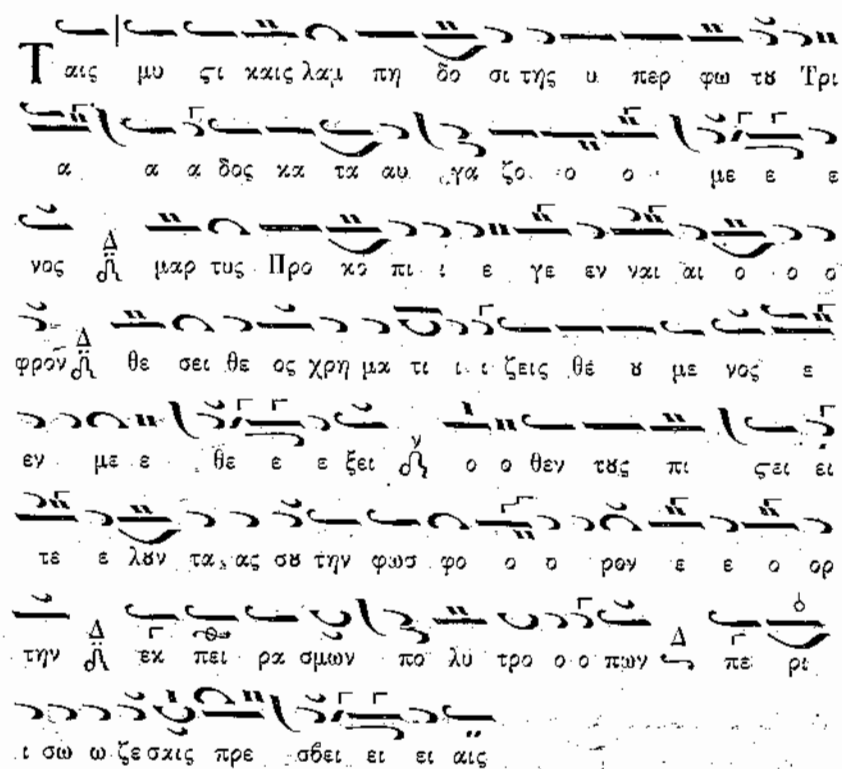 Ταις μυ ϛι καις λαμ πη δο σι της υ περ φω τȣ Τρι
α α α δος κα τα αυ γα ζο ο ο με ε ε
νος Δ μαρ τυς Προ κο πι ι ε γε εν ναι αι ο ο ο
φρον Δ θε σει θε ος χρη μα τι ι ι ζεις θε ȣ με νος ε
εν με ε θε ε ε ξει ν ο ο θεν τȣς πι ϛει ει
τε ε λȣν τα ας σȣ την φωσ φο ο ο ρον ε ε ο ορ
την Δ εκ πει ρα σμων πο λυ τρο ο ο πων Δ πε ρι
ι σω ω ζε σκις πρε σβει ει ει αις